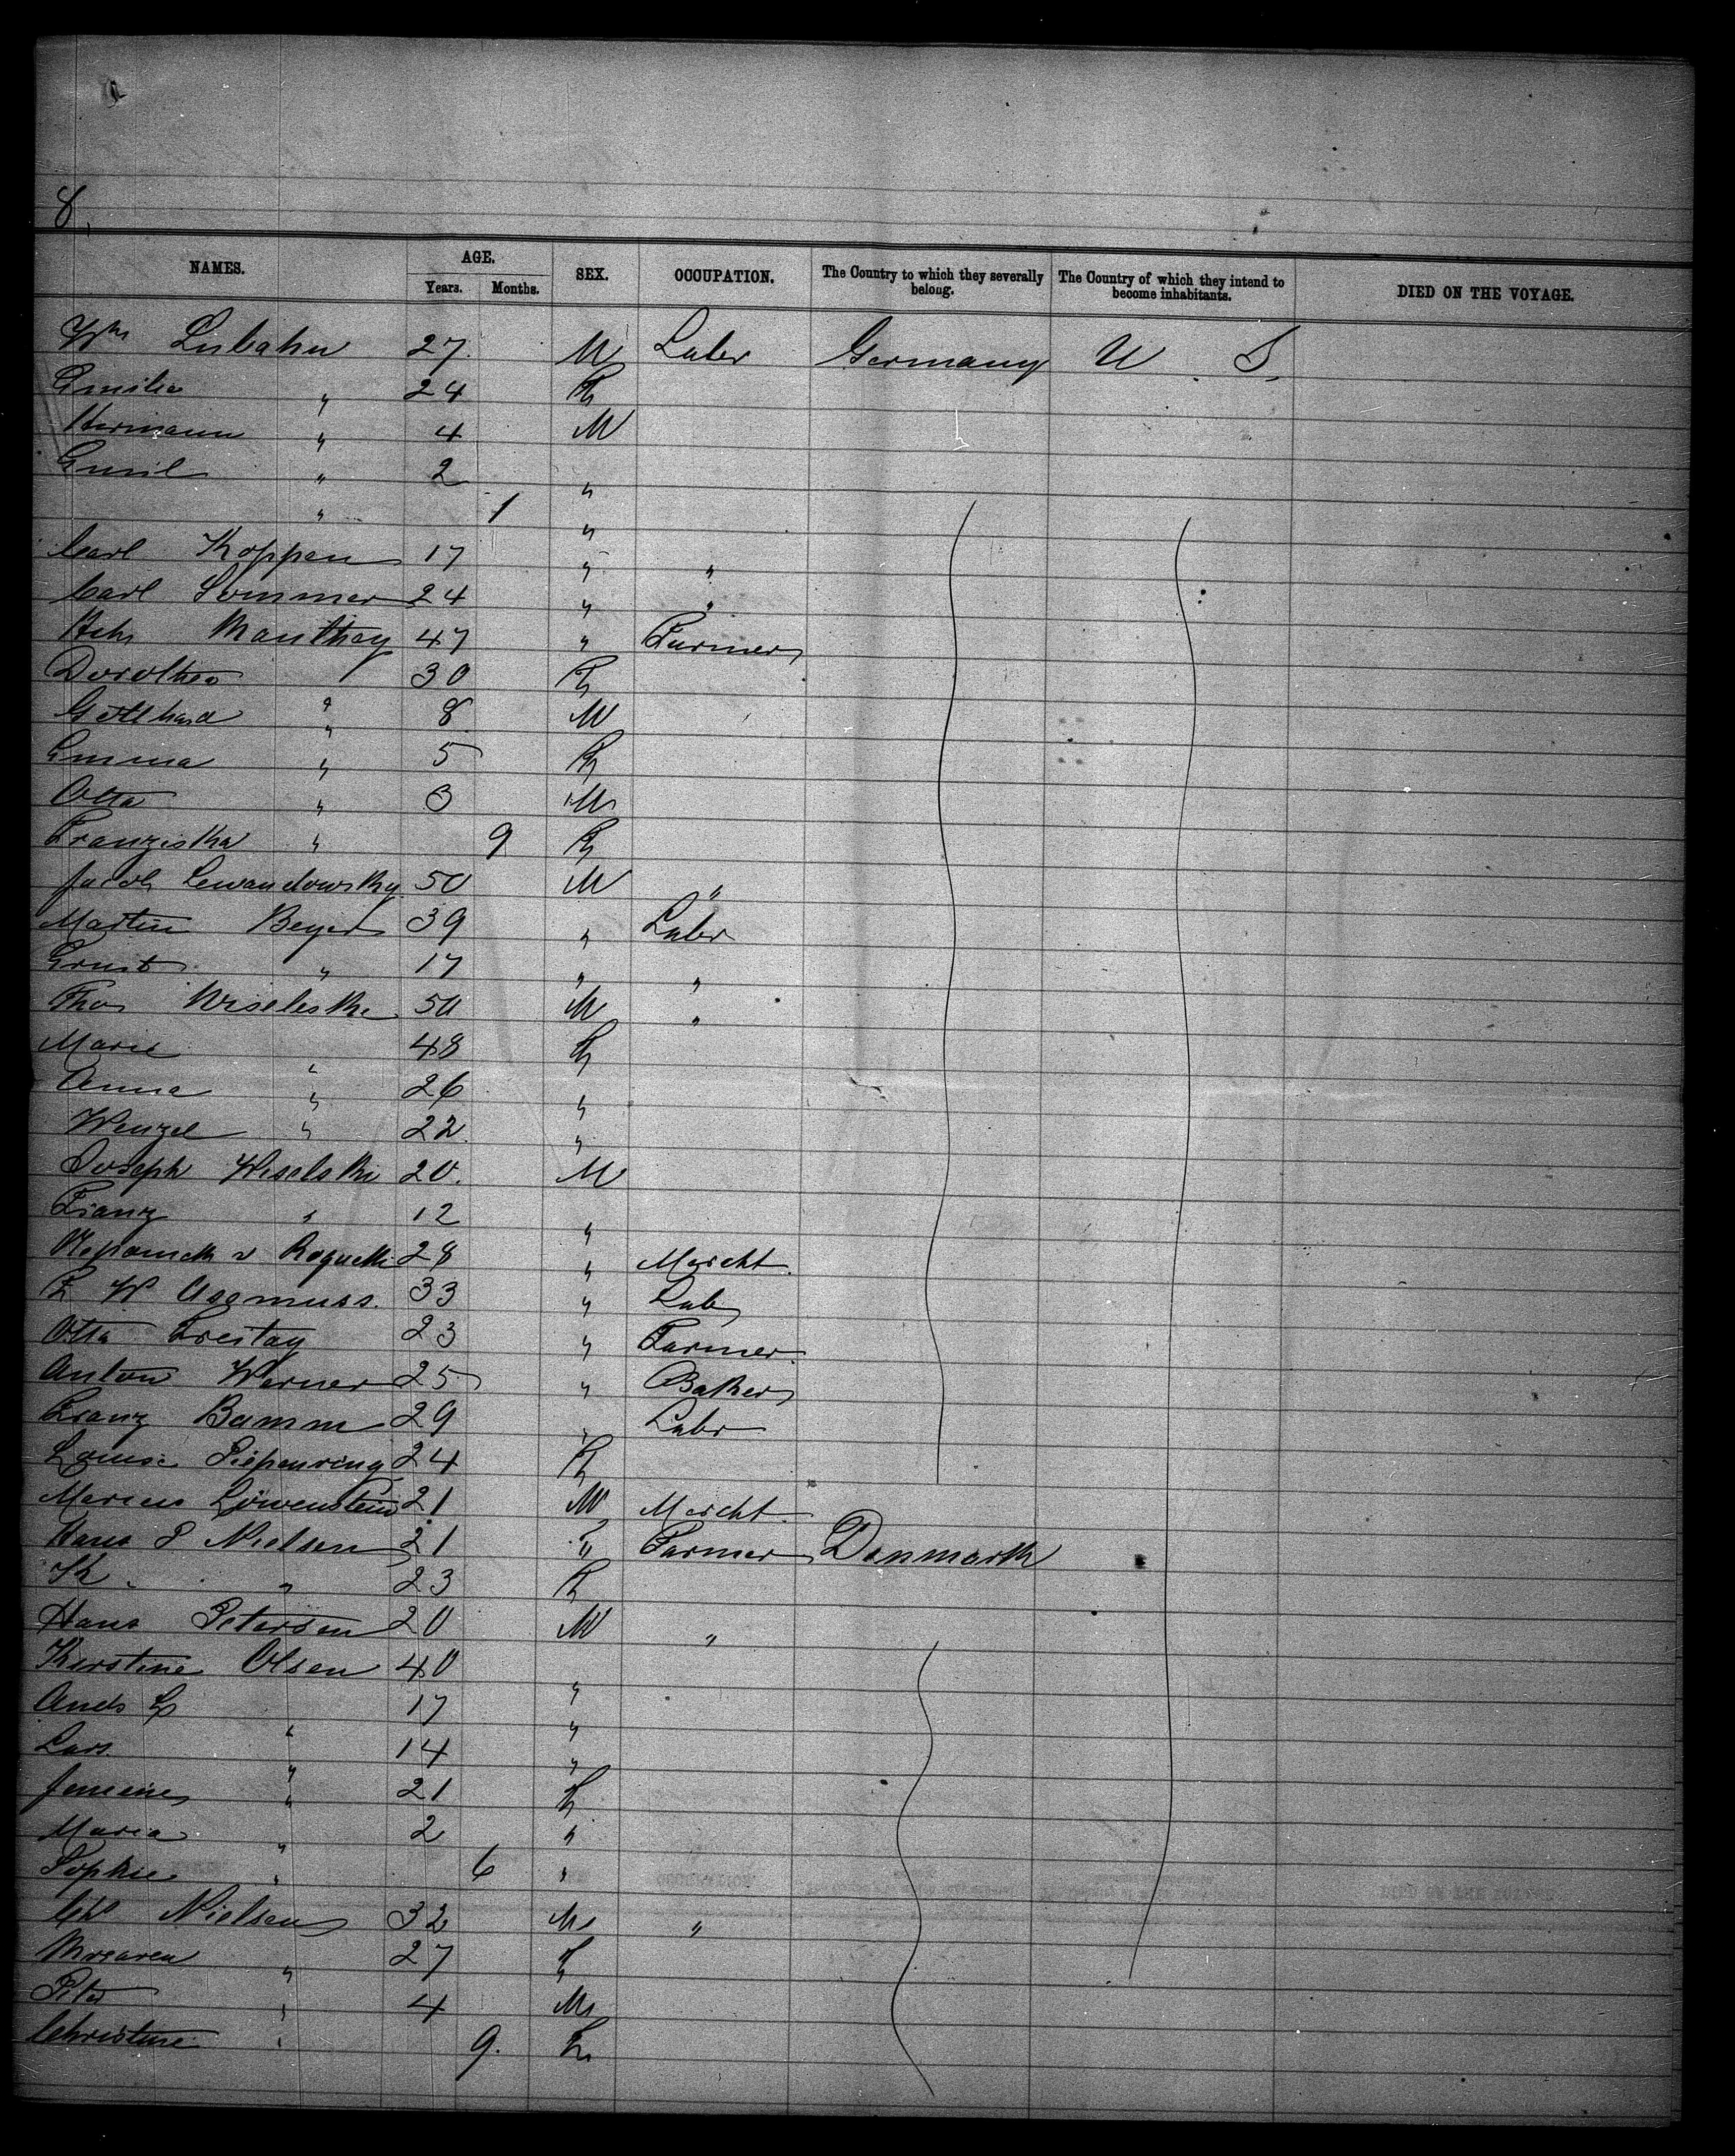 8.
NAMES. AGE. SEX. OCCUPATION. The Country to which they severally belong. The Country of which they intend to become inhabitants. DIED ON THE VOYAGE.
Years. Months.
Wm Lubahn 27 M Labr Germany U S.
Emilie " 24 F
Hermann " 4 M
Emil " 2 "
" 1 "
Carl Koppen 17 " "
Carl Sommer 24 " "
Hch Manthey 47 " Farmer
Dorothea " 30 F
Gotthard " 8 M
Emma " 5 F
Otto " 3 M
Franziska " 9 F
Jacob Lewandowsky 50 M "
Martin Beyer 39 " Labr
Ernst " 17 " "
Thos 50 M "
Marie " 48 F
Anna " 26 "
Wenzel " 22 "
Joseph Wiselski 20. M
Franz " 12 "
v 28 " Marcht.
F W Assmuss. 33 " Lab
Otto Freitag 23 " Farmer.
Anton Werner 25 " Baker
Franz Bamm 29 " Labr
Louise Piepenring 24 F
Marcus Löwenstein 21 M Marcht.
Hans P Nielsen 21 " Farmer Denmark
K. " 23 F
Hans Petersen 20 M "
Kirstine Olsen 40 "
Ands " 17 "
Lars. " 14 "
" 21 F
Maria " 2 "
Sophie " 6 "
Chr Nielsen 32 M "
" 27 F
Peter " 4 M
Christine " 9. F